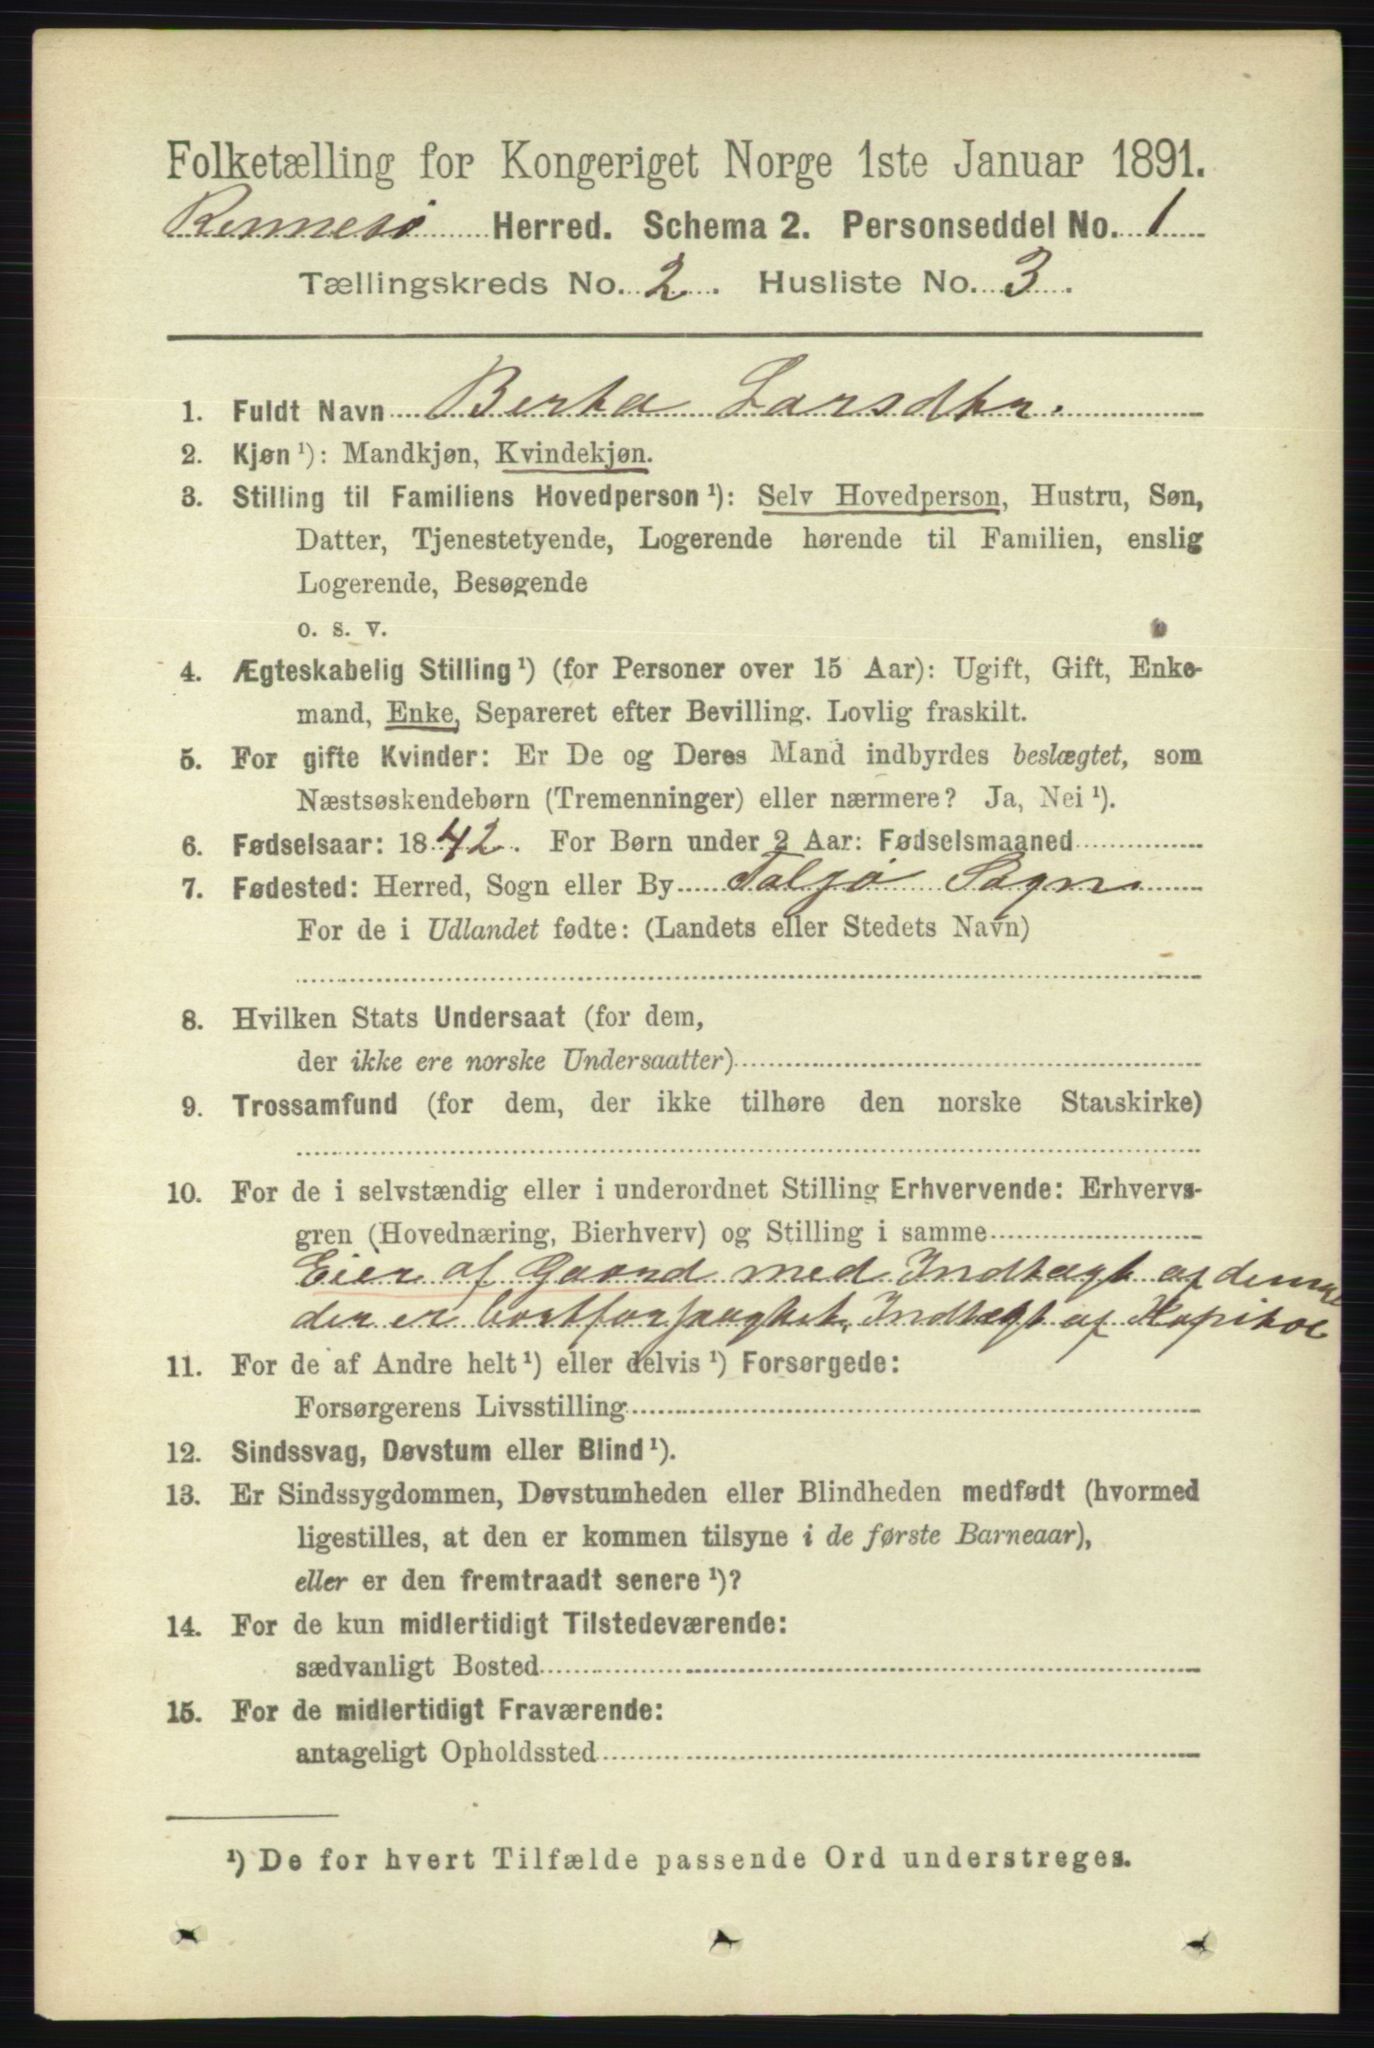 Folketælling for Kongeriget Norge 1ste Januar 1891.
Rennesø Herred. Schema 2. Personseddel No. 1
Tællingskreds No. 2. Husliste No. 3.
1. Fuldt Navn Berta Larsdtr.
2. Kjøn ¹): Mandkjøn, Kvindekjøn.
3. Stilling til Familiens Hovedperson ¹): Selv Hovedperson, Hustru, Søn,
Datter, Tjenestetyende, Logerende hørende til Familien, enslig
Logerende, Besøgende
o. s. v.
4. Ægteskabelig Stilling ¹) (for Personer over 15 Aar): Ugift, Gift, Enke-
mand, Enke, Separeret efter Bevilling. Lovlig fraskilt.
5. For gifte Kvinder: Er De og Deres Mand indbyrdes beslægtet, som
Næstsøskendebørn (Tremenninger) eller nærmere? Ja, Nei ¹).
6. Fødselsaar: 1842. For Børn under 2 Aar: Fødselsmaaned
7. Fødested: Herred, Sogn eller By Taljø Sogn
For de i Udlandet fødte: (Landets eller Stedets Navn)
8. Hvilken Stats Undersaat (for dem,
der ikke ere norske Undersaatter)
9. Trossamfund (for dem, der ikke tilhøre den norske Statskirke)
10. For de i selvstændig eller i underordnet Stilling Erhvervende: Erhvervs-
gren (Hovednæring, Bierhverv) og Stilling i samme
Eier af Gaard med Indtægt af denne
der er bortforpagtet, Indtægt af Kapital
11. For de af Andre helt ¹) eller delvis ¹) Forsørgede:
Forsørgerens Livsstilling
12. Sindssvag, Døvstum eller Blind ¹).
13. Er Sindssygdommen, Døvstumheden eller Blindheden medfødt (hvormed
ligestilles, at den er kommen tilsyne i de første Barneaar),
eller er den fremtraadt senere ¹)?
14. For de kun midlertidigt Tilstedeværende:
sædvanligt Bosted
15. For de midlertidigt Fraværende:
antageligt Opholdssted
¹) De for hvert Tilfælde passende Ord understreges.